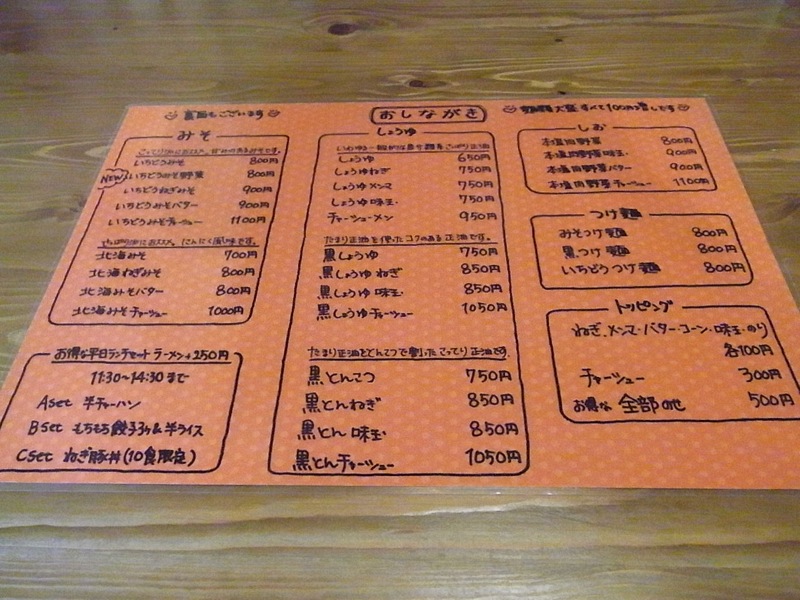 裏面もございます
おしながき
大盛すべて100円増しです
みそ
こってり派におススメ
いちどうみそ 800円
NEW いちどうみそ野菜 800円
いちどうねぎみそ 900円
いちどうみそバター 900円
いちどうみそチャーシュー 1100円
さっぱり派におススメ、にんにく風味です。
北海みそ 700円
北海ねぎみそ 800円
北海みそバター 800円
北海みそチャーシュー 1000円
お得な平日ランチセット ラーメン+250円
11:30~14:30まで
Aset 半チャーハン
Bset もちもち餃子3ヶ&半ライス
Cset ねぎ豚丼(10食限定)
しょうゆ
いわゆる一般的な
しょうゆ 650円
しょうゆねぎ 750円
しょうゆメンマ 750円
しょうゆ味玉 750円
チャーシューメン 950円
たまり正油を使ったコクのある正油です。
黒しょうゆ 750円
黒しょうゆねぎ 850円
黒しょうゆ味玉 850円
黒しょうゆチャーシュー 1050円
たまり正油ととんこつで割ったこってり正油です。
黒とんこつ 750円
黒とんねぎ 850円
黒とん味玉 850円
黒とんチャーシュー 1050円
しお
本塩肉野菜 800円
本塩肉野菜味玉 900円
本塩肉野菜バター 900円
本塩肉野菜チャーシュー 1100円
つけ麺
みそつけ麺 800円
黒つけ麺 800円
いちどうつけ麺 800円
トッピング
ねぎ・メンマ・バター・コーン・味玉・のり
各100円
チャーシュー 300円
お得な 全部のせ 500円